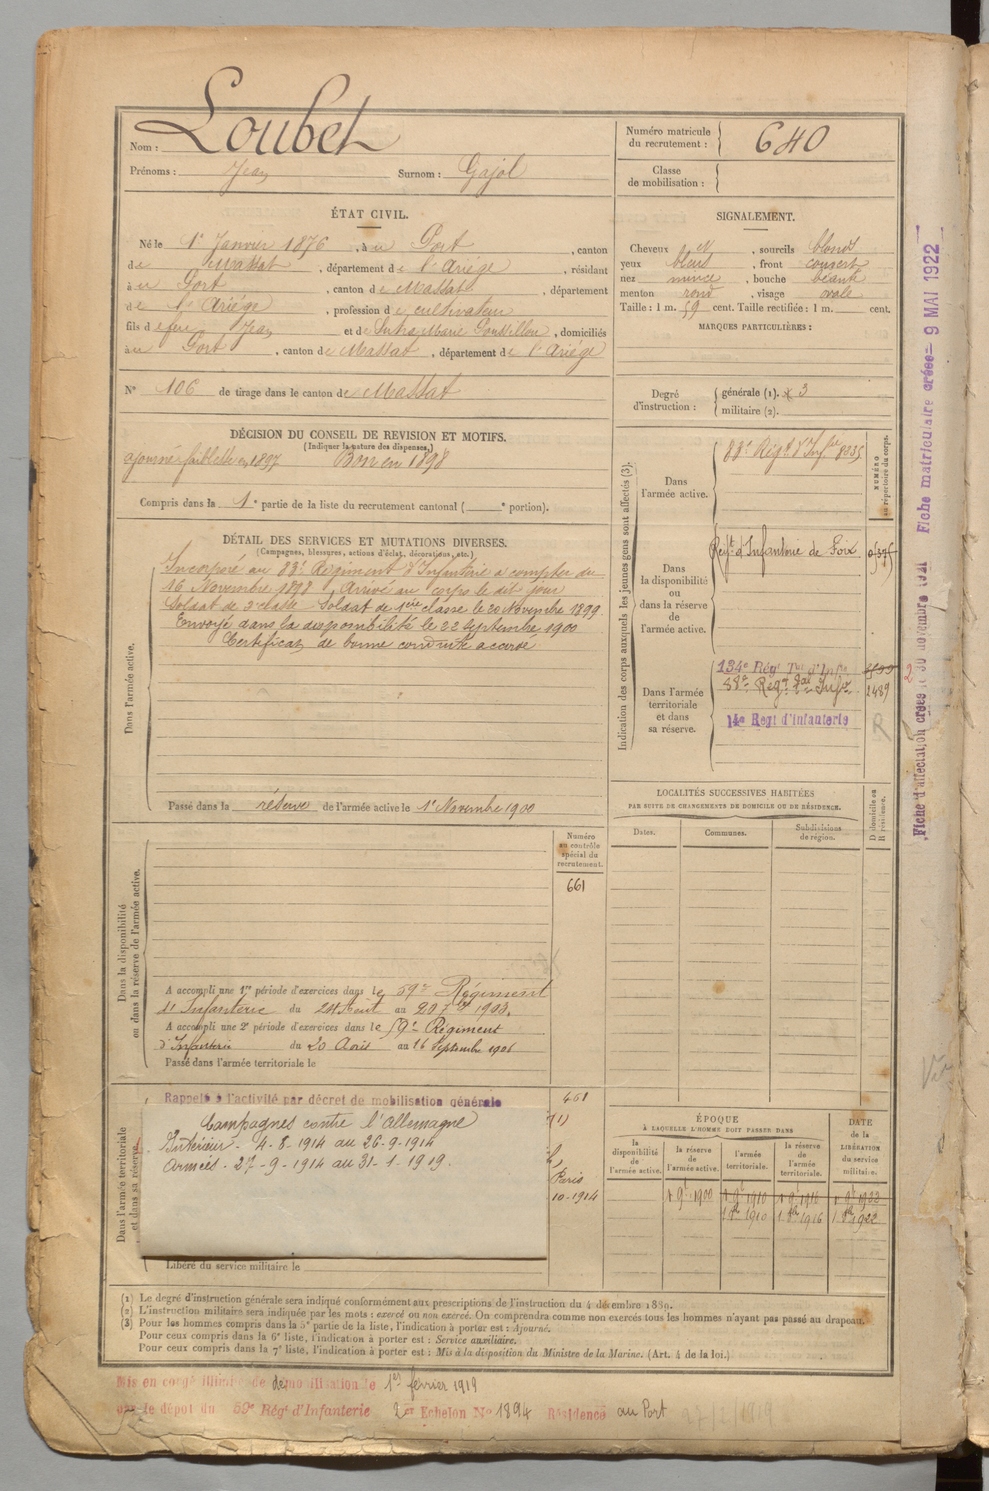 Nom : Loubet
Prénoms : Jean Surnom : Gajol
Numéro matricule du recrutement : 640
Classe de mobilisation :
ÉTAT CIVIL.
Né le 1er Janvier 1876, à u Port, canton
de Massat, département de l'Ariège, résidant
à u Port, canton de Massat, département
de l'Ariège, profession de cultivateur
fils de feu Jean et de Marie, domiciliés
à u Port, canton de Massat, département de l'Ariège
N° 106 de tirage dans le canton de Massat
SIGNALEMENT.
Cheveux, sourcils blonds
yeux bleus, front couvert
nez mince, bouche béante
menton rond, visage ovale
Taille : 1 m. 59 cent. Taille rectifiée : 1 m. cent.
MARQUES PARTICULIÈRES :
Degré d'instruction : générale (1). 3
militaire (2).
DÉCISION DU CONSEIL DE REVISION ET MOTIFS.
(Indiquer la nature des dispenses.)
ajourné faiblesse en 1897 Bon en 1898
Compris dans la 1e partie de la liste du recrutement cantonal ( e portion).
DÉTAIL DES SERVICES ET MUTATIONS DIVERSES.
(Campagnes, blessures, actions d'éclat, décorations, etc.)
Dans l'armée active.
Incorporé au 83e Régiment d'Infanterie à compter du
16 Novembre 1898, Arrivé au corps le dit jour
Soldat de 2e classe Soldat de 1ère classe le 20 Novembre 1899
Envoyé dans la disponibilité le 22 Septembre 1900
Certificat de bonne conduite accordé
Passé dans la réserve de l'armée active le 1er Novembre 1900
Indication des corps auxquels les jeunes gens sont affectés (3).
NUMÉRO au répertoire du corps.
Dans l'armée active.
83e Régt d'Infrie 8035
Dans la disponibilité ou dans la réserve de l'armée active.
Régt d'Infanterie de Foix
Dans l'armée territoriale et dans sa réserve.
134e Régt Tal d'Infie
2489
14e Regt d'infanterie
R
LOCALITÉS SUCCESSIVES HABITÉES
PAR SUITE DE CHANGEMENTS DE DOMICILE OU DE RÉSIDENCE.
D domicile ou R résidence.
Dates. Communes. Subdivisions de région.
Dans la disponibilité ou dans la réserve de l'armée active.
Numéro au contrôle spécial du recrutement.
661
A accompli une 1re période d'exercices dans le 59e Régiment
d'Infanterie du 24 Août au 20 7bre 1903.
A accompli une 2e période d'exercices dans le 59e Régiment
d'Infanterie du 20 Août au 16 Septembre 1906
Passé dans l'armée territoriale le
Dans l'armée territoriale et dans sa réserve.
Rappelé à l'activité par décret de mobilisation générale
661
Campagnes contre l'allemagne
Intérieur. 4-8-1914 au 26-9-1914
Armées. 27-9-1914 au 31-1-1919.
Paris
10-1914
Libéré du service militaire le
ÉPOQUE
À LAQUELLE L'HOMME DOIT PASSER DANS
DATE de la LIBÉRATION du service militaire.
la disponibilité de l'armée active. la réserve de l'armée active. l'armée territoriale. la réserve de l'armée territoriale.
1er 9bre 1900
(1) Le degré d'instruction générale sera indiqué conformément aux prescriptions de l'instruction du 4 décembre 1889.
(2) L'instruction militaire sera indiquée par les mots : exercé ou non exercé. On comprendra comme non exercés tous les hommes n'ayant pas passé au drapeau.
(3) Pour les hommes compris dans la 5e partie de la liste, l'indication à porter est : Ajourné.
Pour ceux compris dans la 6e liste, l'indication à porter est : Service auxiliaire.
Pour ceux compris dans la 7e liste, l'indication à porter est : Mis à la disposition du Ministre de la Marine. (Art. 4 de la loi.)
Mis en congé illimité de démobilisation le 1er février 1919
par le dépôt du 59e Régt d'Infanterie 2e Echelon No 1894 Résidence au Port
Fiche d'affectation créée le 30 novembre 1921 Fiche matriculaire créée - 9 MAI 1922